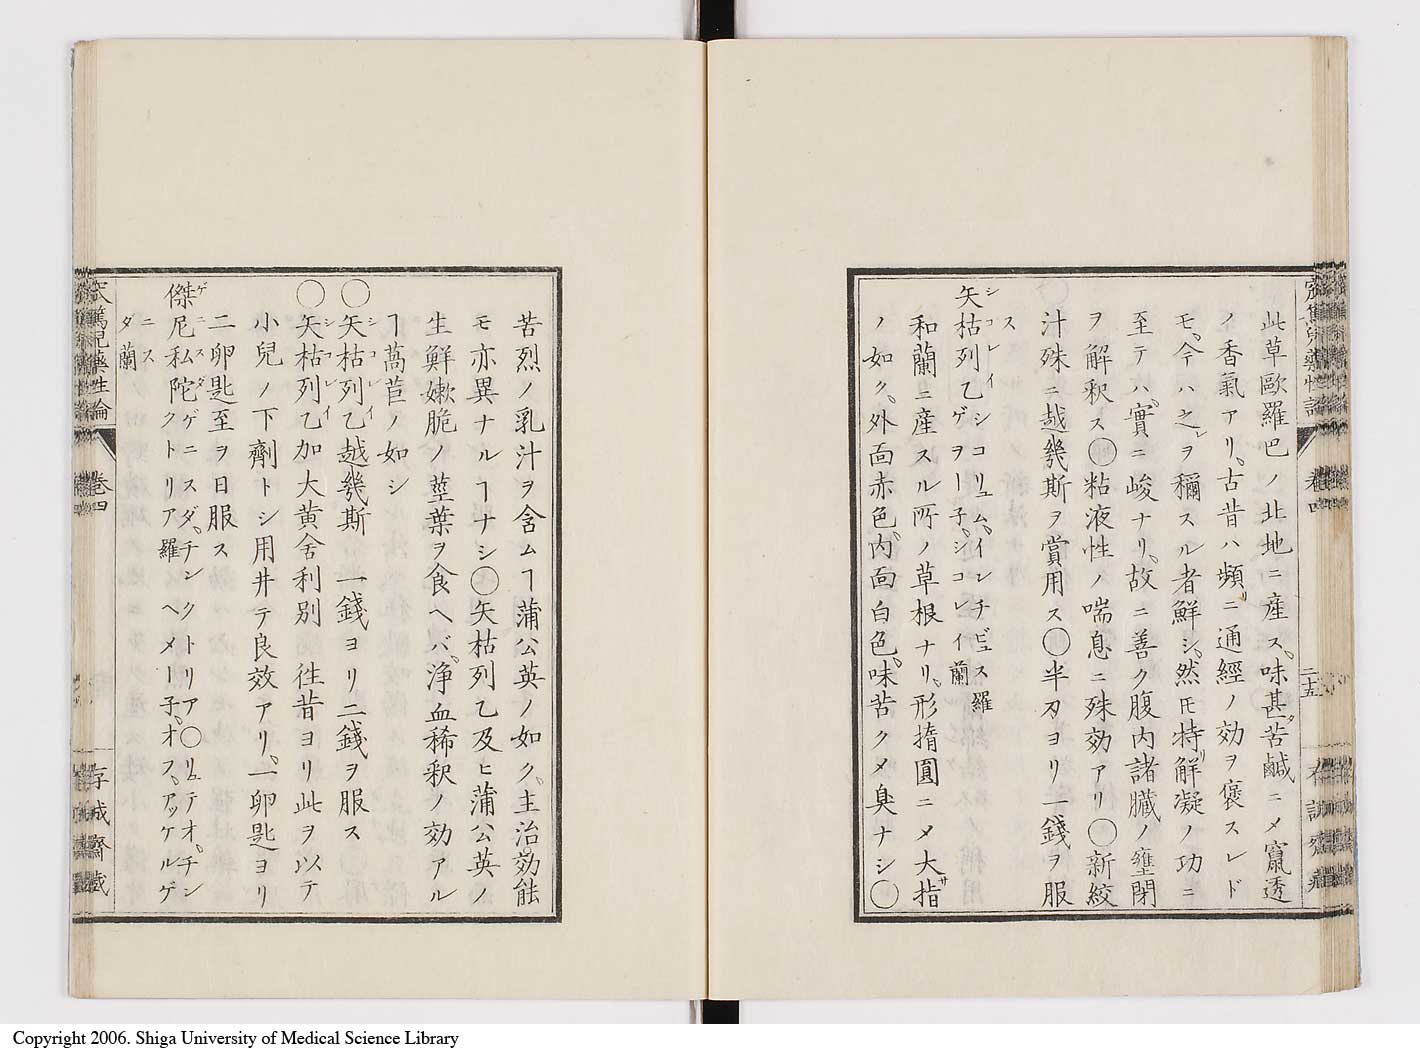 此草歐羅巴ノ北地ニ産ス、味甚ダ苦鹹ニ〆竄透
ノ香氣アリ、古昔ハ頻リニ通經ノ効ヲ褒スレド
モ、今ハ之レヲ稱スル者鮮シ、然モ特リ解凝ノ功ニ
至テハ、實ニ峻ナリ、故ニ善ク腹内諸臓ノ壅閉
ヲ解釈ス〇粘液性ノ喘息ニ殊効アリ〇新絞
汁殊ニ越幾斯ヲ賞用ス〇半刄ヨリ一錢ヲ服
ス
矢枯列乙 シコリュム、インチビュス 羅
シコレイ
ゲヲー子、シコレイ 蘭
和蘭ニ産スル所ノ草根ナリ、形撱圓ニ〆大サ指
ノ如ク、外面赤色、内面白色、味苦ク〆臭ナシ〇
卷四
二十五
苦烈ノ乳汁ヲ含ムヿ蒲公英ノ如ク、主治効能
モ亦異ナルヿナシ〇矢枯列乙及ヒ蒲公英ノ
生鮮嫩脆ノ莖葉ヲ食ヘバ、浄血稀釈ノ効アル
ヿ萵苣ノ如シ
〇矢枯列乙越幾斯 一錢ヨリ二錢ヲ服ス
シコレイ
〇矢枯列乙加大黄舎利別 徃昔ヨリ此ヲ以テ
シコレイ
小兒ノ下劑トシ用井テ良效アリ、一卵匙ヨリ
二卵匙至ヲ日服ス
傑尼私陀 ゲニスダ、チンクトリア〇リュテオ、チン
ゲニスダ
クトリア 羅 ヘメー子、オフ、アッケルゲ
ニス
ダ 蘭
卷四
存誠齋藏